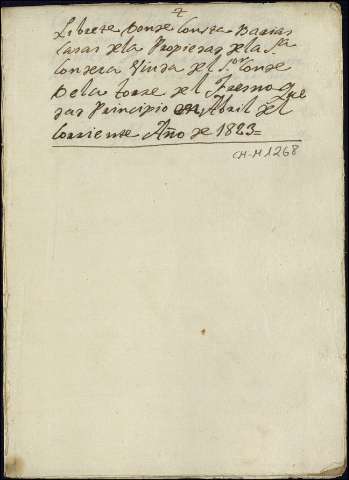 4
Librete Donde Consta Barias
Casas de la Propiedad de la S.ra
Condesa Viuda del S.or Conde
De la torre del Fresno que
dar Principio en Abril del
Corriente Año de 1823=
CH-H 1268